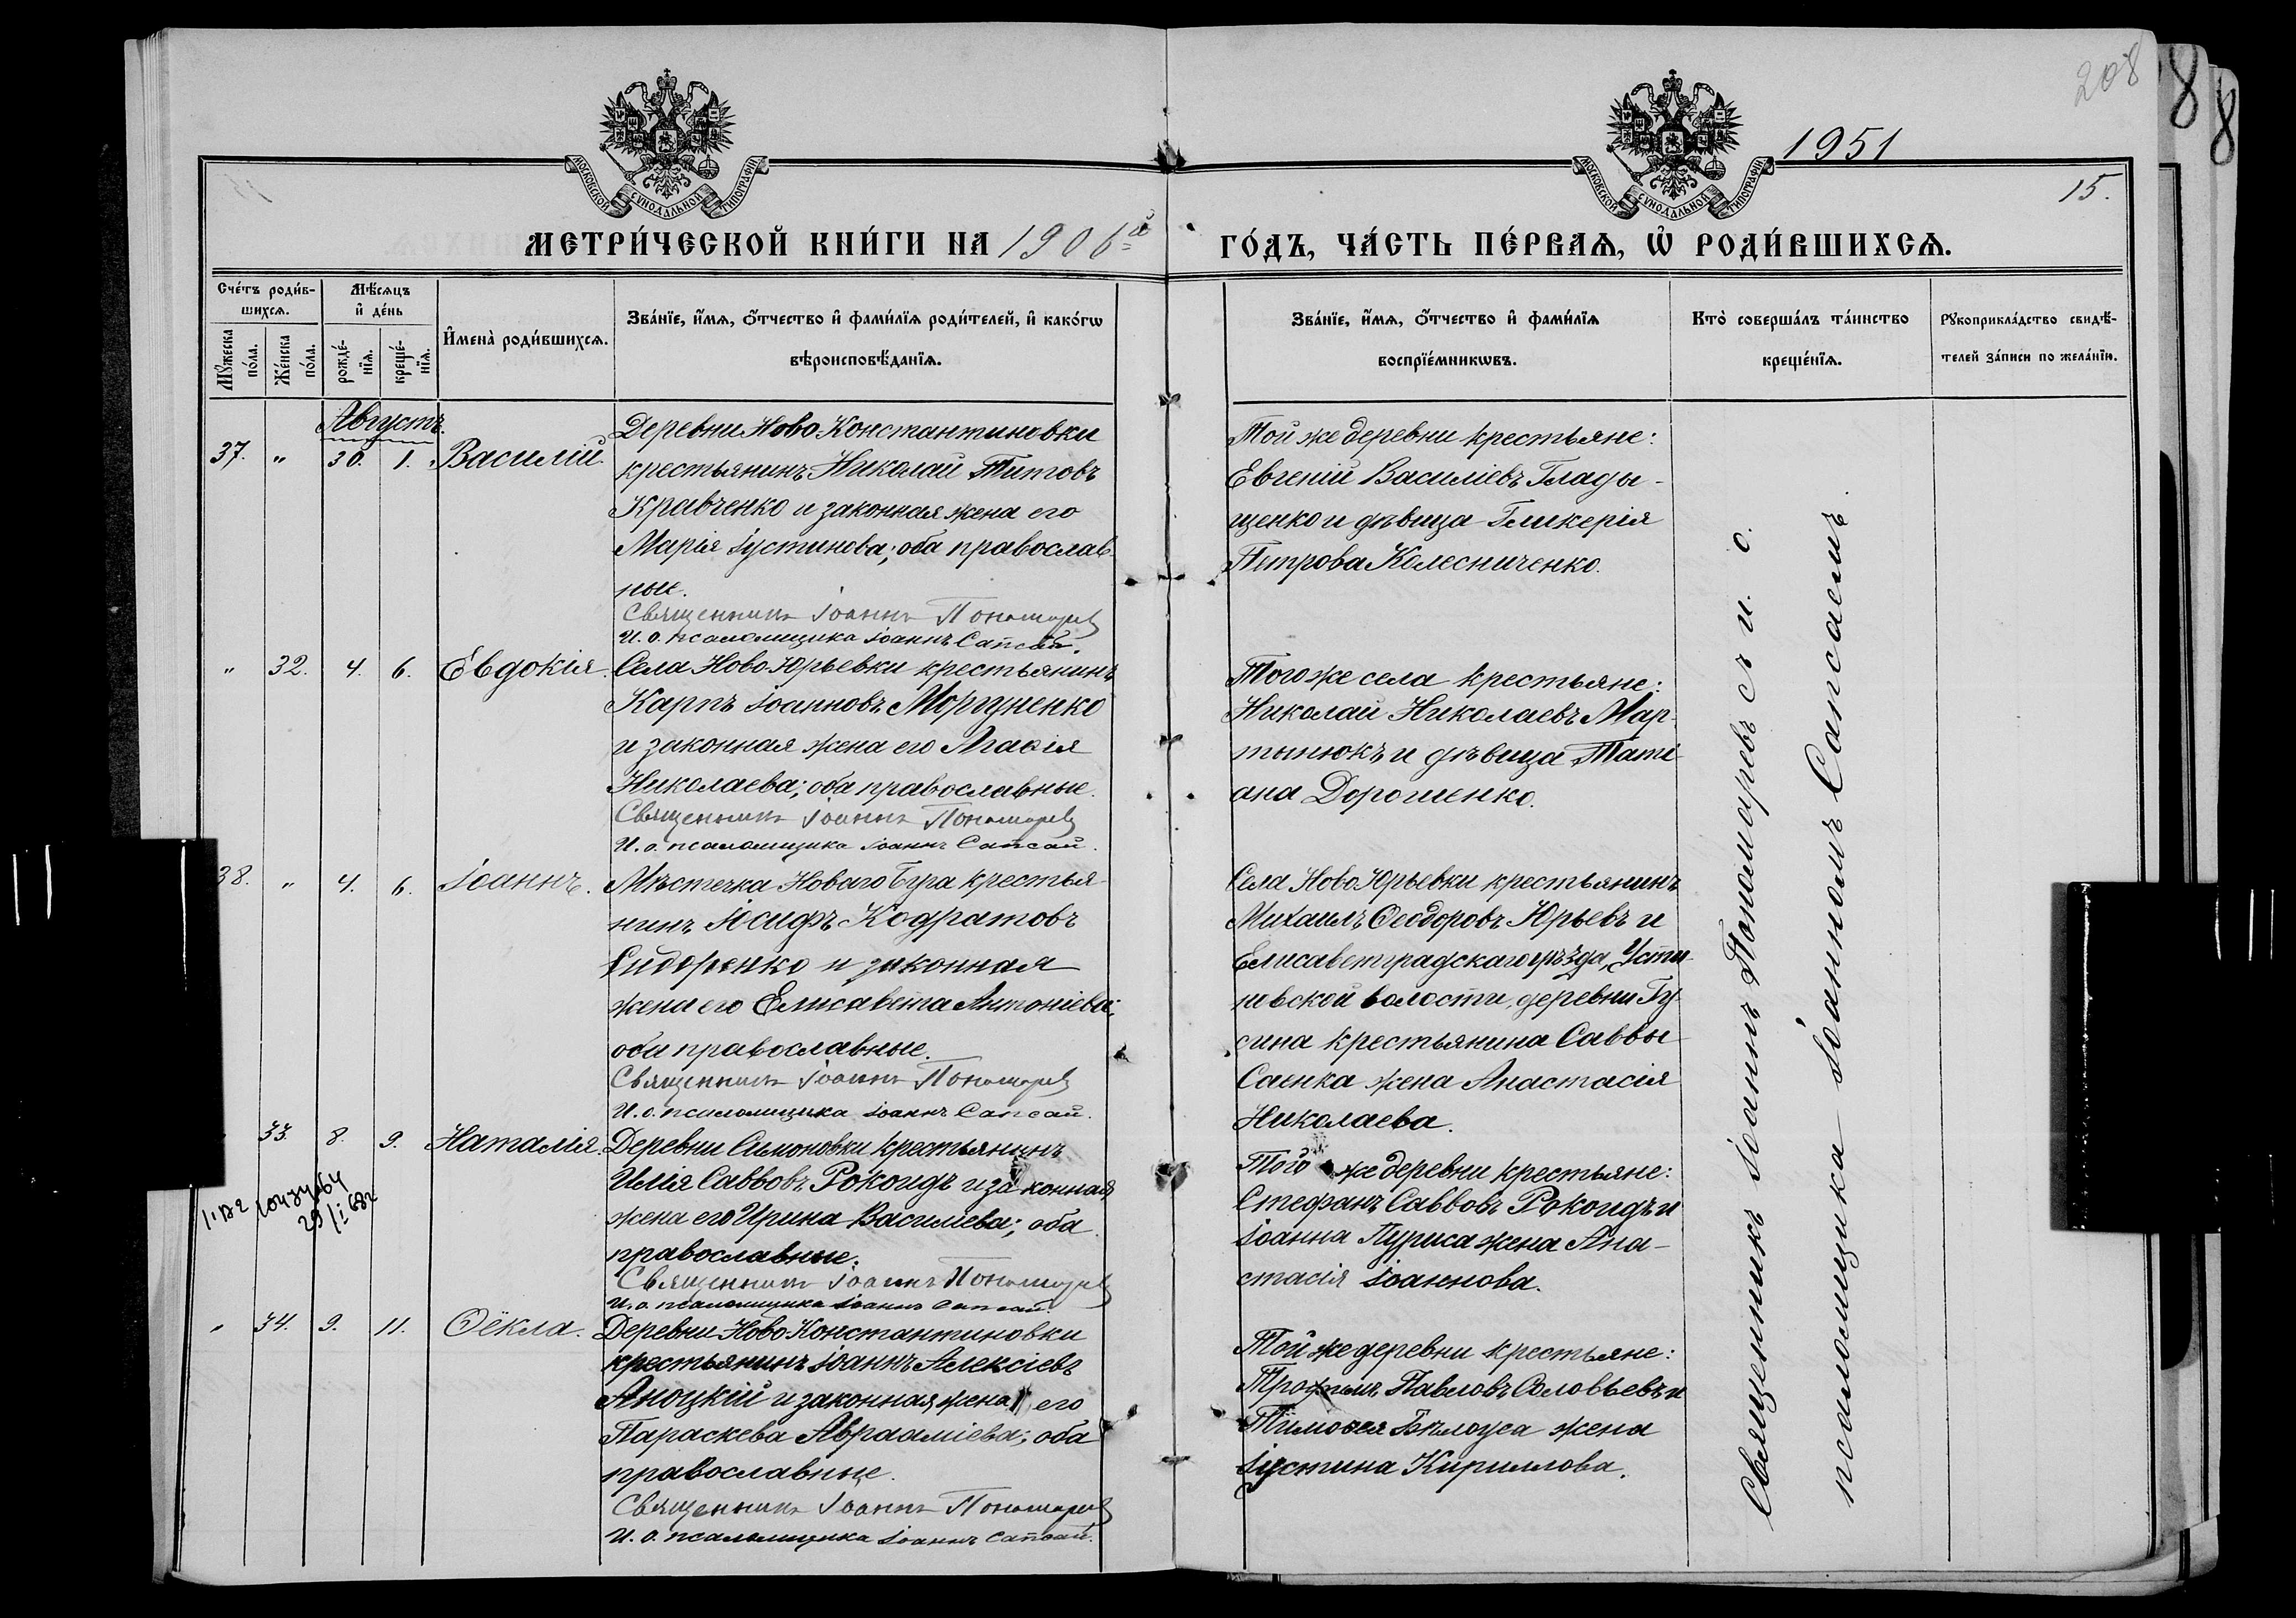 208
8
8
1951
15.
МОСКОВСКОЙ СѴНОДАЛЬНОЙ ТИПОГРАФІИ
МОСКОВСКОЙ СѴНОДАЛЬНОЙ ТИПОГРАФІИ
МЕТРИ́ЧЕСКОЙ КНИ́ГИ НА 1906й
ГО́ДЪ, ЧА́СТЬ ПЕ́РВАѦ, Ѡ҆ РОДИ́ВШИХСѦ.
Сче́тъ роди́в-
шихсѧ.
Мꙋ́жеска по́ла.
Же́нска по́ла.
Мѣ́сѧцъ
и҆ де́нь
рожде́-
нїѧ.
креще́-
нїѧ.
И҆мена̀ роди́вшихсѧ.
Зва́нїе, и҆́мѧ, ѻ҆́тчество и҆ фами́лїѧ роди́телей, и҆ како́гѡ
вѣроисповѣ́данїѧ.
Зва́нїе, и҆́мѧ, ѻ҆́тчество и҆ фами́лїѧ
воспрїе́мникѡвъ.
Кто̀ соверша́лъ та́инство
креще́нїѧ.
Рꙋкоприкла́дство свидѣ́-
телей за́писи по жела́нїю.
Августъ.
37. " 30. 1. Василій.
Деревни Ново-Константиновки
крестьянинъ Николай Титовъ
Кравченко и законная жена его
Марія Іустинова; оба православ-
ные.
Священникъ Іоаннъ Пономарев
И. о. псаломщика Іоаннъ Сапсай.
Той же деревни крестьяне:
Евгеній Василіевъ Глады-
щенко и дѣвица Гликерія
Петрова Колесниченко.
" 32. 4. 6. Евдокія.
Села Ново-Юрьевки крестьянинъ
Карпъ Іоанновъ Моргуненко
и законная жена его Агафія
Николаева; оба православные.
Священникъ Іоаннъ Пономарев
И. о. псаломщика Іоаннъ Сапсай.
Того же села крестьяне:
Николай Николаевъ Мар-
тынюкъ и дѣвица Тати-
ана Дорошенко.
38. " 4. 6. Іоаннъ.
Мѣстечка Новаго Буга крестья-
нинъ Іосифъ Кодратовъ
Сидоренко и законная
жена его Елисавета Антоніева;
оба православные.
Священникъ Іоаннъ Пономарев
И. о. псаломщика Іоаннъ Сапсай.
Села Ново-Юрьевки крестьянинъ
Михаилъ Ѳеодоровъ Юрьевъ и
Елисаветградскаго уѣзда, Усти-
новской волости, деревни Гу-
сина крестьянина Саввы
Саенка жена Анастасія
Николаева.
33. 8. 9. Наталія.
Деревни Симоновки крестьянинъ
Илія Саввовъ Рокоидъ и законная
жена его Ирина Василіева; оба
православные.
Священникъ Іоаннъ Пономарев
И. о. псаломщика Іоаннъ Сапсай.
Того же деревни крестьяне:
Стефанъ Саввовъ Рокоидъ и
Іоанна Пуриса жена Ана-
стасія Іоаннова.
" 34. 9. 11. Ѳекла.
Деревни Ново-Константиновки
крестьянинъ Іоаннъ Алексіевъ
Аноцкій и законная жена его
Параскева Авраамiева; оба
православные.
Священникъ Іоаннъ Пономарев
И. о. псаломщика Іоаннъ Сапсай.
Той же деревни крестьяне:
Трофимъ Павловъ Соловьевъ и
Тимоѳея Бѣлоуса жена
Іустина Кириллова.
Священникъ Іоаннъ Пономаревъ съ и. о.
псаломщика Іоанномъ Сапсаемъ.